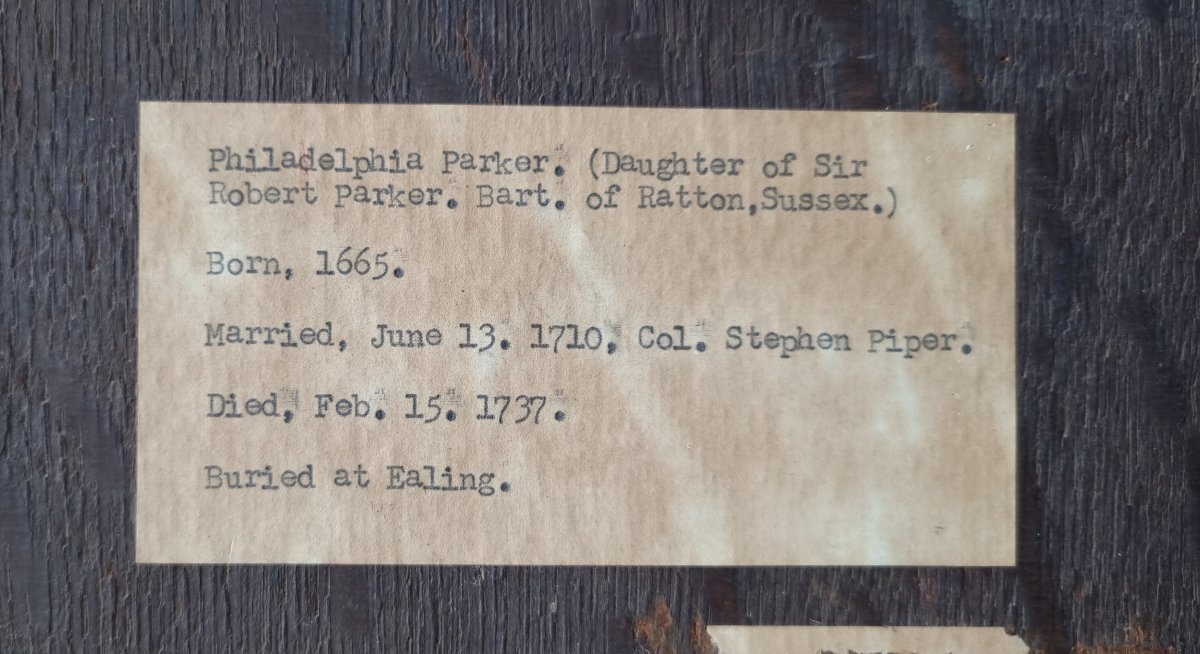 Philadelphia Parker. (Daughter of Sir
Robert Parker. Bart. of Ratton,Sussex.)
Born, 1665.
Married, June 13. 1710, Col. Stephen Piper.
Died, Feb. 15. 1737.
Buried at Ealing.